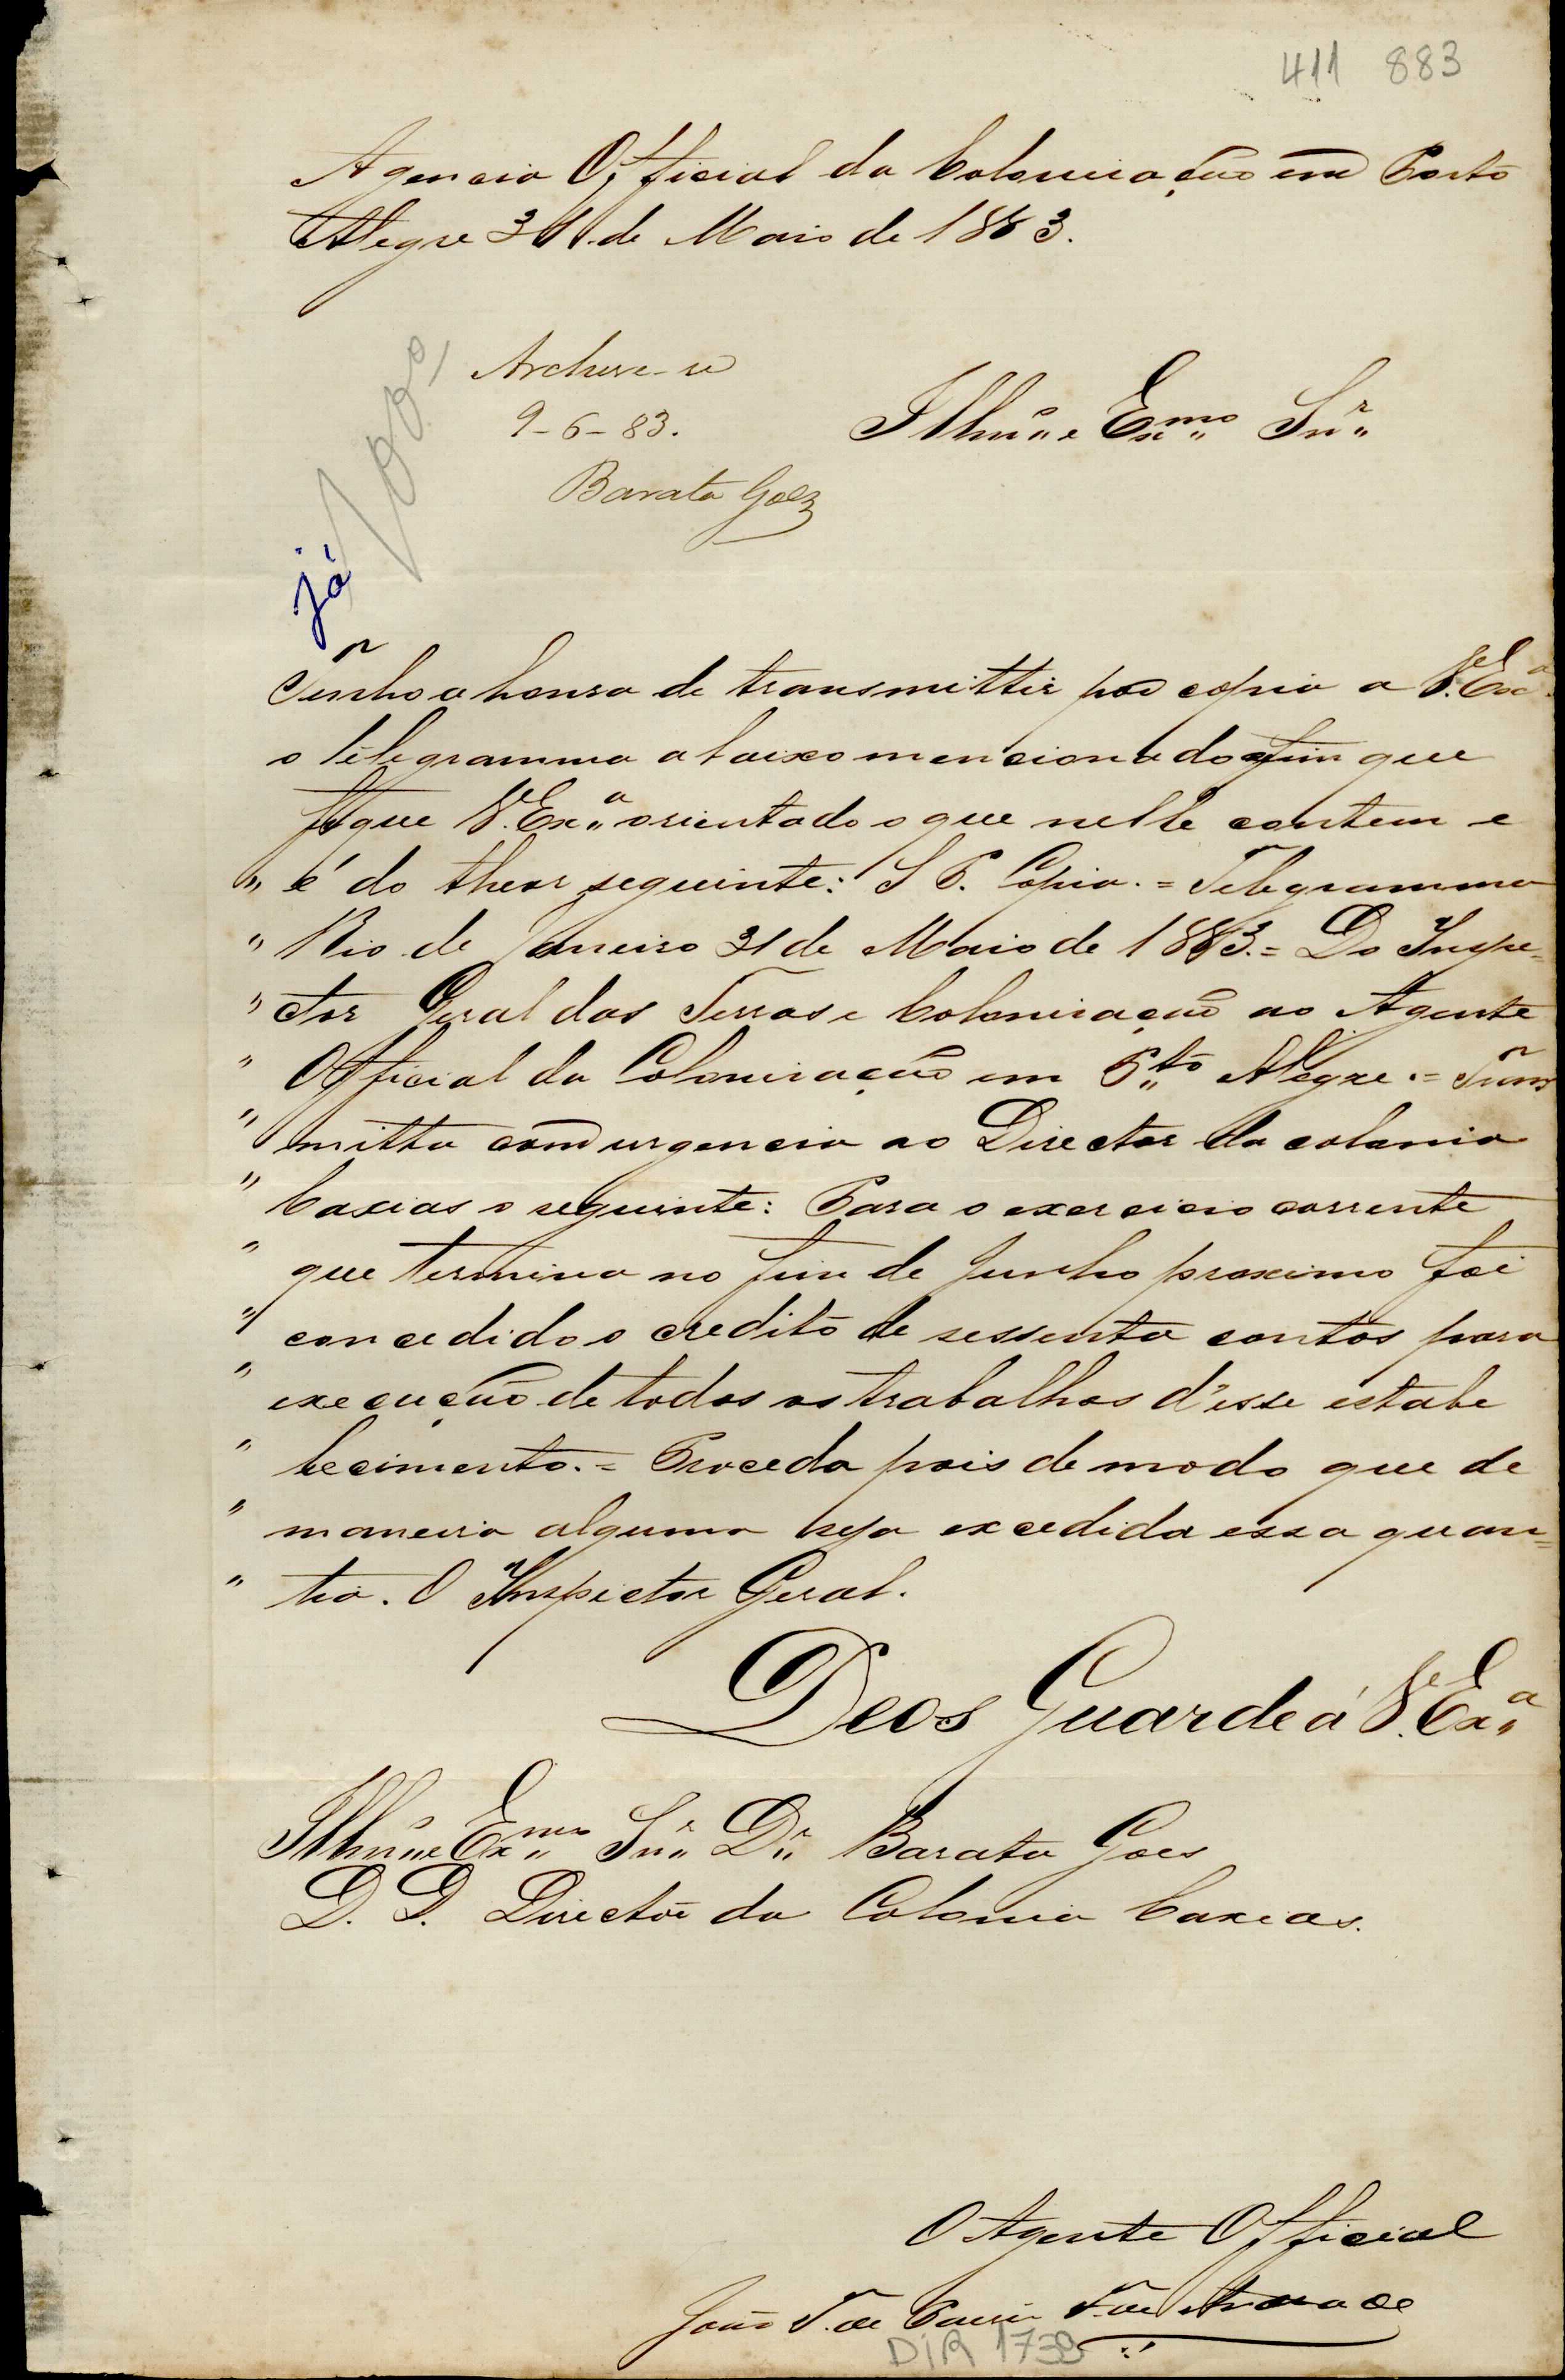 411 883
Agencia Official da Colonisação em Porto
Alegre 31 de Maio de 1883.
Archive-se
9-6-83.
Barata Goes
Illmº e Exmo Snr
já
Tenho a honra de transmittir por copia a V. Exª
o telegramma abaixo mencionado afim que
fique V. Exª orientado o que nelle contem e
" é do theor seguinte: S P. Copia. = Telegramma
" Rio de Janeiro 31 de Maio de 1883. = Do Inspe=
" ctor Geral das Terras e Colonisação ao Agente
" Official da Colonisação em Pto Alegre. = Trans
" mitta com urgencia ao Director da colonia
" Caxias o seguinte: Para o exercicio corrente
" que termina no fim de Junho proximo foi
" concedido o credito de sessenta contos para
" execução de todos os trabalhos d'esse estabe
" lecimento. = Proceda pois de modo que de
" maneira alguma seja excedida essa quan=
" tia. O Inspector Geral.
Deos Guarde á V. Exª
Illmº e Exmo Snr Dr Barata Goes
D. D. Director da Colonia Caxias.
O Agente Official
João T. de
DIR 1738